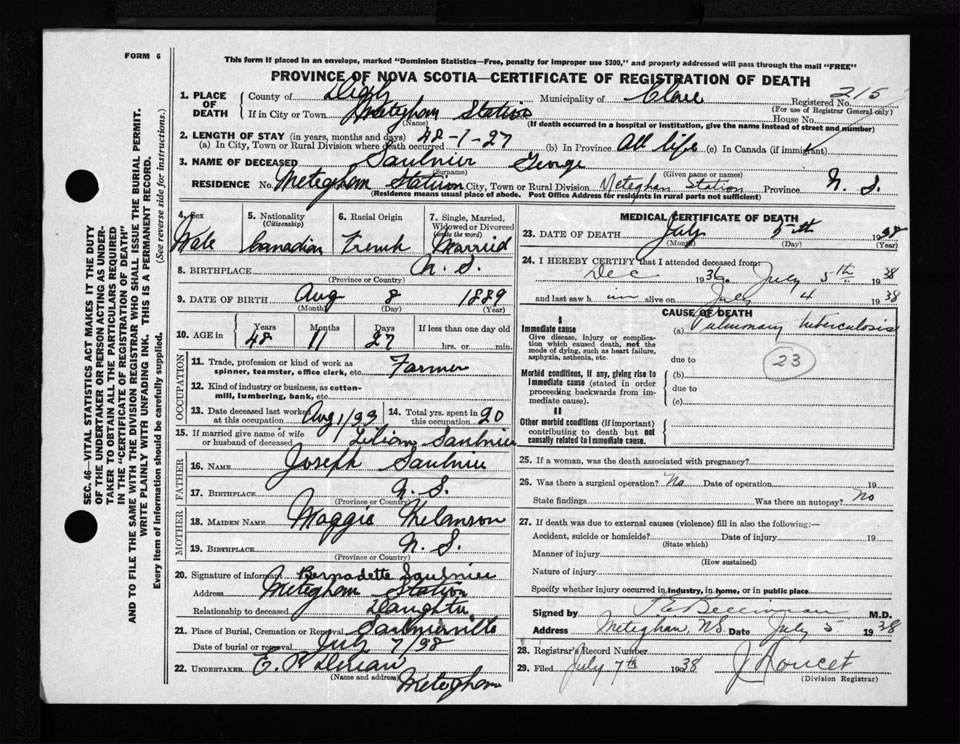 FORM 6
This form if placed in an envelope, marked "Dominion Statistics—Free, penalty for improper use $300," and properly addressed will pass through the mail "FREE"
PROVINCE OF NOVA SCOTIA—CERTIFICATE OF REGISTRATION OF DEATH
1. PLACE OF DEATH County of Digby Municipality of Clare Registered No. 215
(For use of Registrar General only)
If in City or Town Meteghan Station House No.
(Name) (If death occurred in a hospital or institution, give the name instead of street and number)
2. LENGTH OF STAY (in years, months and days) 48-1-27
(a) In City, Town or Rural Division where death occurred (b) In Province All life (c) In Canada (if immigrant)
3. NAME OF DECEASED Saulnier George
(Surname) (Given name or names)
RESIDENCE No. Meteghan Station City, Town or Rural Division Meteghan Station Province N. S.
(Residence means usual place of abode. Post Office Address for Residents in rural parts not sufficient)
4. Sex Male
5. Nationality (Citizenship) Canadian
6. Racial Origin French
7. Single, Married, Widowed or Divorced (write the word) Married
8. BIRTHPLACE N. S.
(Province or Country)
9. DATE OF BIRTH Aug 8 1889
(Month) (Day) (Year)
10. AGE in Years Months Days If less than one day old
48 11 27 hrs. or min.
OCCUPATION
11. Trade, profession or kind of work as spinner, teamster, office clerk, etc. Farmer
12. Kind of industry or business, as cotton-mill, lumbering, bank, etc.
13. Date deceased last worked at this occupation Aug 1/33 14. Total yrs. spent in this occupation 20
15. If married give name of wife or husband of deceased Lilian Saulnier
FATHER
16. NAME Joseph Saulnier
17. BIRTHPLACE N. S.
(Province or Country)
MOTHER
18. MAIDEN NAME Maggie Melanson
19. BIRTHPLACE N. S.
(Province or Country)
20. Signature of informant Bernadette Saulnier
Address Meteghan Station
Relationship to deceased Daughter
21. Place of Burial, Cremation or Removal Saulnierville
Date of burial or removal July 7/38
22. UNDERTAKER E. P.
(Name and address) Meteghan
MEDICAL CERTIFICATE OF DEATH
23. DATE OF DEATH July 5th 1938
(Month) (Day) (Year)
24. I HEREBY CERTIFY that I attended deceased from:
Dec 1936 July 5th 1938
and last saw him alive on July 4 1938
CAUSE OF DEATH
I
Immediate cause (a) Pulmonary tuberculosis
Give disease, injury or complication which caused death, not the mode of dying, such as heart failure, asphyxia, asthenia, etc.
due to
23
Morbid conditions, if any, giving rise to immediate cause (stated in order proceeding backwards from immediate cause).
(b)
due to
(c)
II
Other morbid conditions (if important) contributing to death but not causally related to immediate cause.
25. If a woman, was the death associated with pregnancy?
26. Was there a surgical operation? No Date of operation 19
State findings Was there an autopsy? No
27. If death was due to external causes (violence) fill in also the following:—
Accident, suicide or homicide? Date of injury 19
(State which)
Manner of injury
(How sustained)
Nature of injury
Specify whether injury occurred in industry, in home, or in public place
Signed by M.D.
Address Meteghan, N.S. Date July 5 1938
28. Registrar's Record Number
29. Filed July 7th 1938 J Doucet
(Division Registrar)
SEC. 46—VITAL STATISTICS ACT MAKES IT THE DUTY
OF THE UNDERTAKER OR PERSON ACTING AS UNDER-
TAKER TO OBTAIN ALL THE PARTICULARS REQUIRED
IN THE "CERTIFICATE OF REGISTRATION OF DEATH"
AND TO FILE THE SAME WITH THE DIVISION REGISTRAR WHO SHALL ISSUE THE BURIAL PERMIT.
WRITE PLAINLY WITH UNFADING INK. THIS IS A PERMANENT RECORD.
Every item of information should be carefully supplied. (See reverse side for instructions.)